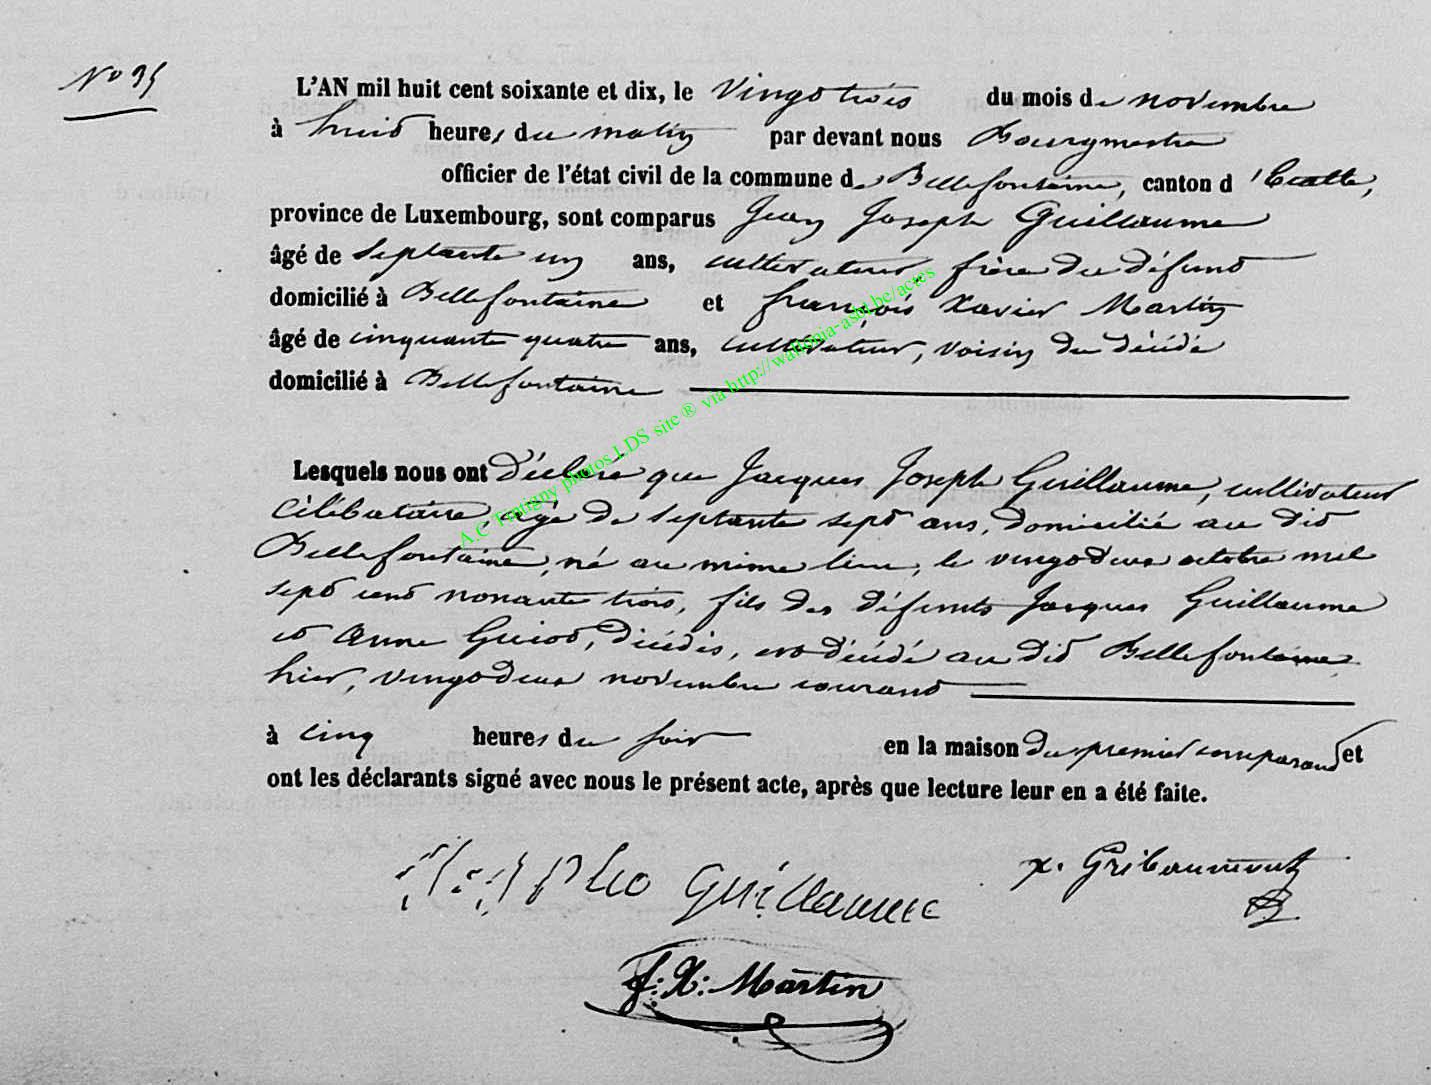 No 95
L'AN mil huit cent soixante et dix, le vingt trois du mois de novembre
à huit heures du matin par devant nous Bourgmestre
officier de l'état civil de la commune de Bellefontaine, canton d'Etalle,
province de Luxembourg, sont comparus Jean Joseph Guillaume
âgé de septante un ans, cultivateur, frère du défunt
domicilié à Bellefontaine et françois Xavier Martin
âgé de cinquante quatre ans, cultivateur, voisin du décédé
domicilié à Bellefontaine
Lesquels nous ont déclaré que Jacques Joseph Guillaume, cultivateur
célibataire, âgé de septante sept ans, domicilié au dit
Bellefontaine, né au même lieu, le vingt deux octobre mil
sept cent nonante trois, fils des défunts Jacques Guillaume
et Anne Guiot, décédés, est décédé au dit Bellefontaine
hier, vingt deux novembre courant
à cinq heures du soir en la maison du premier comparant et
ont les déclarants signé avec nous le présent acte, après que lecture leur en a été faite.
Guillaume
f. X. Martin
A.C Tintigny photos LDS site ® via http://wallonia-asbl.be/actes